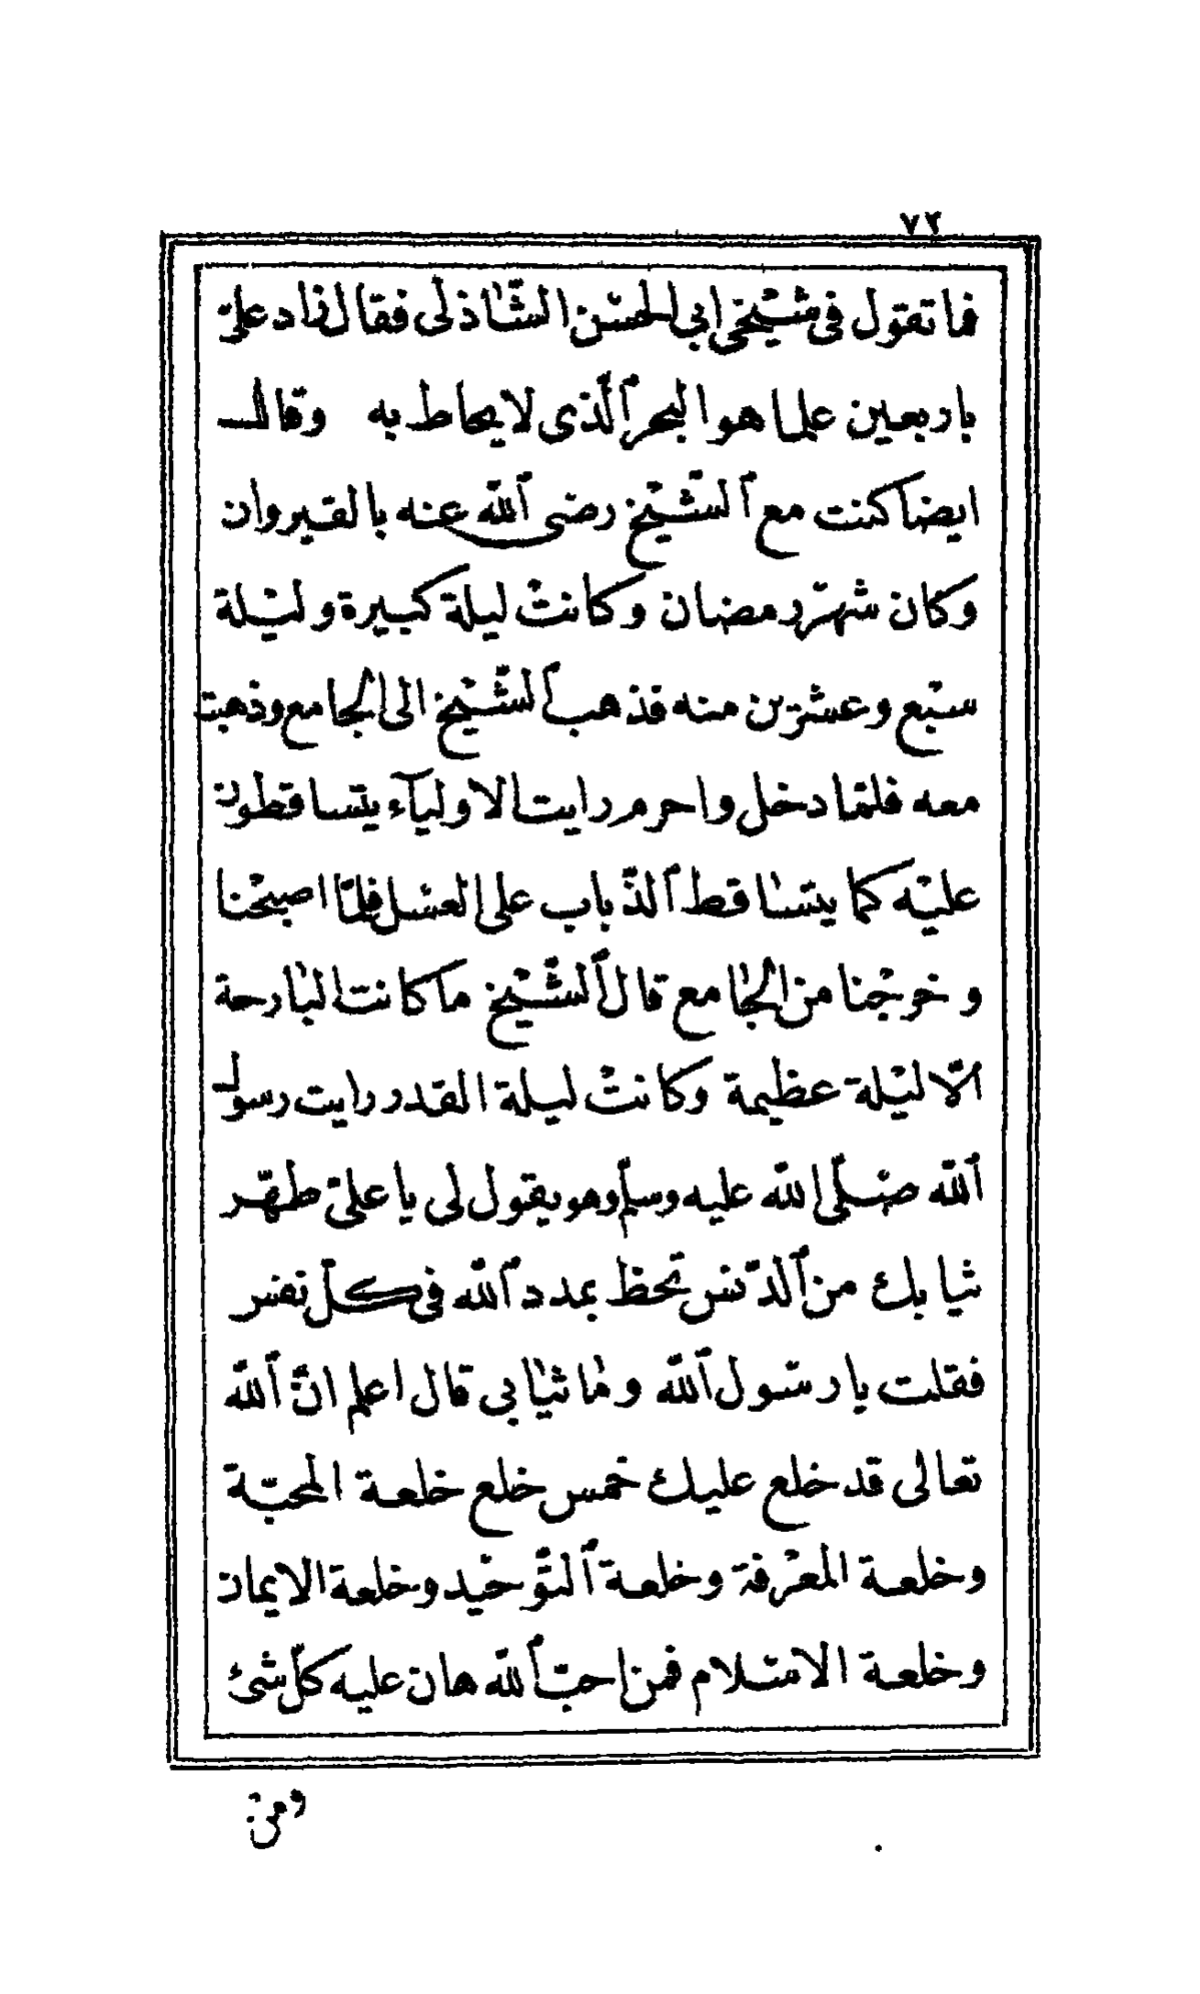 ٧٢
فما تقول فى شيخى ابى الحسن الشاذلى فقال زاد علىّ
باربعين علما هو البحر الّذى لا يحاط به وقال
ايضا كنت مع الشّيخ رضى اللّه عنه بالقيروان
وكان شهر رمضان وكانت ليلة كبيرة وليلة
سبع وعشرين منه فذهب الشّيخ الى الجامع وذهبت
معه فلمّا دخل واحرم رايت الاوليآء يتساقطون
عليه كما يتساقط الذّباب على العسل فلمّا اصبحنا
وخرجنا من الجامع قال الشّيخ ما كانت البارحة
الّا ليلة عظيمة وكانت ليلة القدر رايت رسول
اللّه صلّى اللّه عليه وسلّم وهو يقول لى يا علىّ طهّر
ثيابك من الدّنس تحظ بمدد اللّه فى كلّ نفس
فقلت يا رسول اللّه وما ثيابى قال اعلم انّ اللّه
تعالى قد خلع عليك خمس خلع خلعة المحبّة
وخلعة المعرفة وخلعة التّوحيد وخلعة الايمان
وخلعة الاسلام فمن احبّ اللّه هان عليه كلّ شئ
ومن